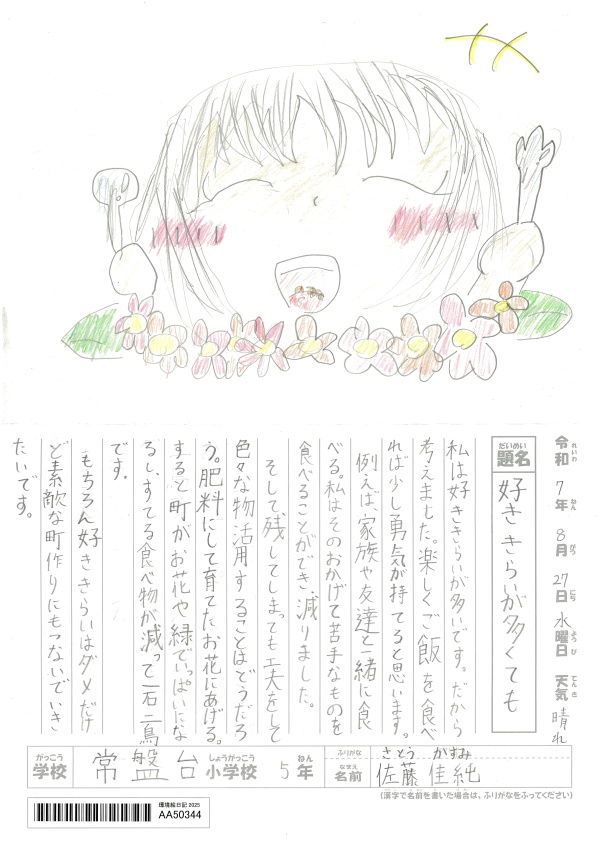 令和 7年 8月 27日 水曜日 天気 晴れ
れいわ ねん がつ にち ようび てんき
だいめい
題名 好ききらいが多くても
私は好ききらいが多いです。だから
考えました。楽しくご飯を食べ
れば少し勇気が持てると思います。
例えば、家族や友達と一緒に食
べる。私はそのおかげで苦手なものを
食べることができ、減りました。
そして、残してしまっても工夫をして
色々な物活用することはどうだろ
う。肥料にして育てたお花にあげる。
すると町がお花や緑でいっぱいにな
るし、すてる食べ物が減って一石二鳥
です。
もちろん好ききらいはダメだけ
ど素敵な町作りにもつないでいき
たいです。
がっこう しょうがっこう ねん
学校 常盤台小学校 5年
ふりがな さとう かすみ
なまえ
名前 佐藤 佳純
(漢字で名前を書いた場合は、ふりがなをふってください)
環境絵日記 2025
AA50344